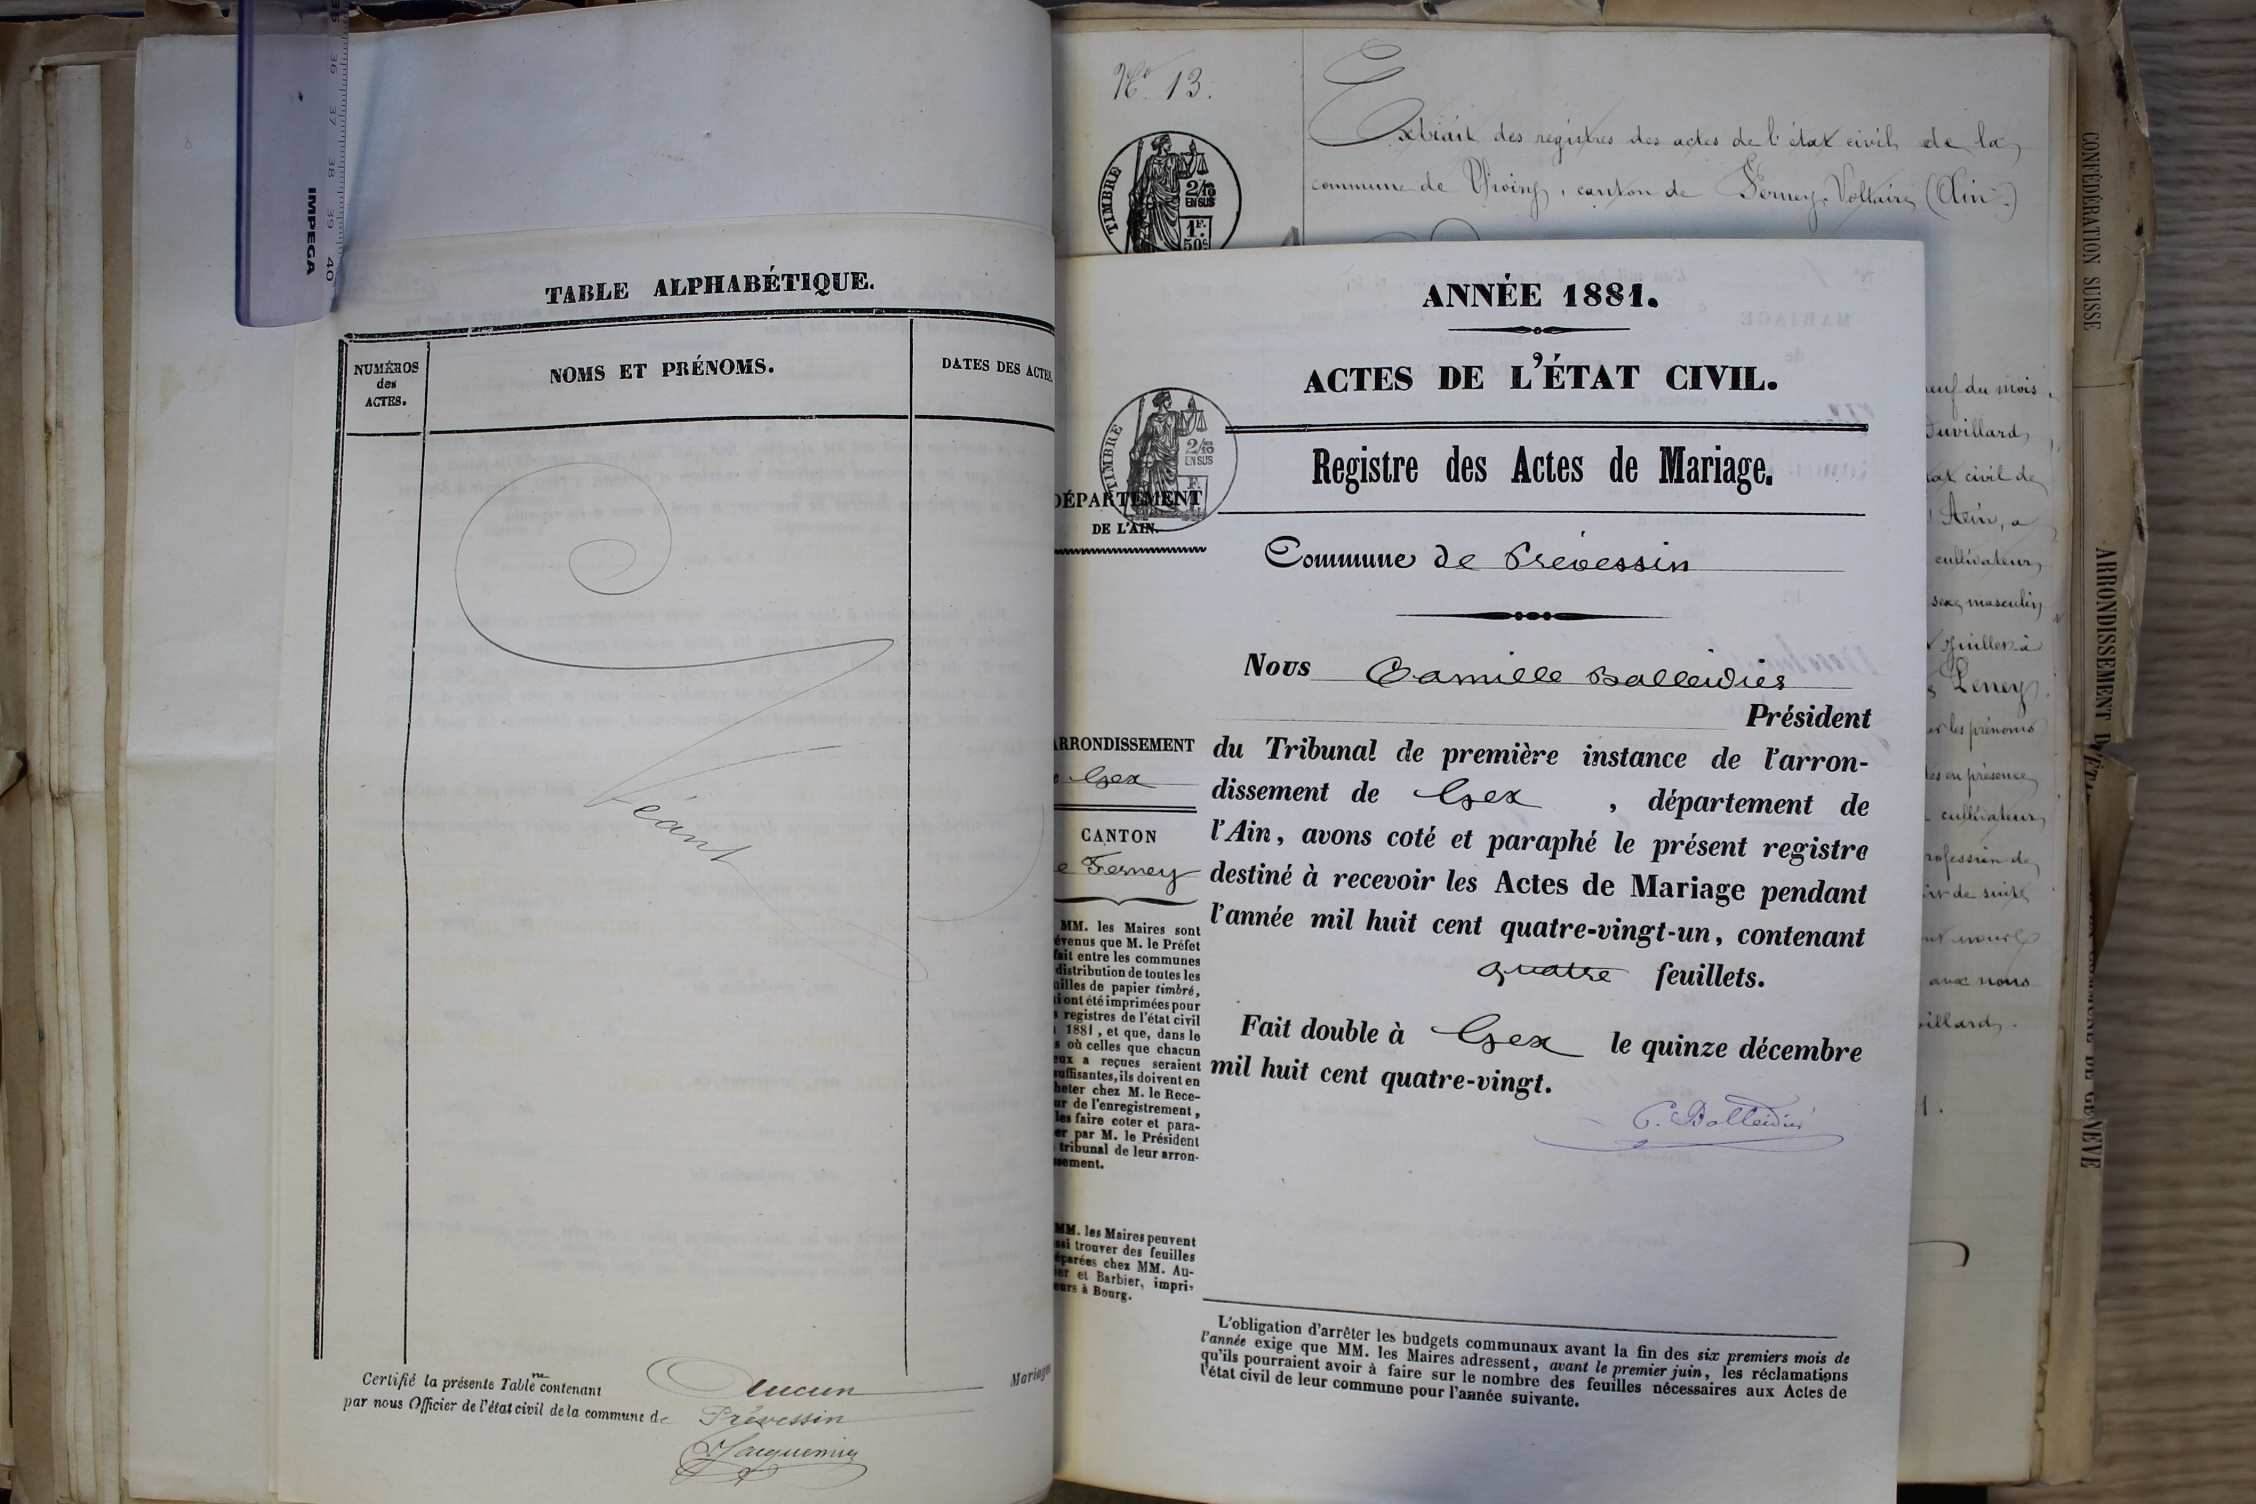 36 37 38 39 40
IMPEGA
TABLE ALPHABÉTIQUE.
NUMÉROS
des
ACTES.
NOMS ET PRÉNOMS.
DATES DES ACTES.
Néant
Certifié la présente Table ne contenant Aucun Mariages
par nous Officier de l'état civil de la commune de Prévessin
Jacquemin
No 13.
TIMBRE
2/10
EN SUS
1F.
50c
Extrait des registres des actes de l'état civil de la
commune de Versoix, canton de Ferney-Voltaire (Ain)
ANNÉE 1881.
ACTES DE L'ÉTAT CIVIL.
TIMBRE
2/10
EN SUS
F.
Registre des Actes de Mariage.
DÉPARTEMENT
DE L'AIN.
Commune de Prévessin
Nous Camille Balleidier
Président
du Tribunal de première instance de l'arron-
dissement de Gex, département de
l'Ain, avons coté et paraphé le présent registre
destiné à recevoir les Actes de Mariage pendant
l'année mil huit cent quatre-vingt-un, contenant
quatre feuillets.
Fait double à Gex le quinze décembre
mil huit cent quatre-vingt.
C. Balleidier
ARRONDISSEMENT
e Gex
CANTON
e Ferney
MM. les Maires sont
évenus que M. le Préfet
fait entre les communes
distribution de toutes les
uilles de papier timbré,
i ont été imprimées pour
s registres de l'état civil
1881, et que, dans le
s où celles que chacun
eux a reçues seraient
uffisantes, ils doivent en
heter chez M. le Rece-
ur de l'enregistrement,
les faire coter et para-
er par M. le Président
tribunal de leur arron-
ssement.
MM. les Maires peuvent
ssi trouver des feuilles
éparées chez MM. Au-
ier et Barbier, impri-
eurs à Bourg.
L'obligation d'arrêter les budgets communaux avant la fin des six premiers mois de
l'année exige que MM. les Maires adressent, avant le premier juin, les réclamations
qu'ils pourraient avoir à faire sur le nombre des feuilles nécessaires aux Actes de
l'état civil de leur commune pour l'année suivante.
euf du mois
Duvillard
tat civil de
Ain, a
cultivateur
sexe masculin
Juillet à
Peney
er les prénoms
tés en présence
cultivateur
rofession de
de suite
avec nous
villard.
1.
CONFÉDÉRATION SUISSE
ARRONDISSEMENT D'ÉT
DE GENÈVE